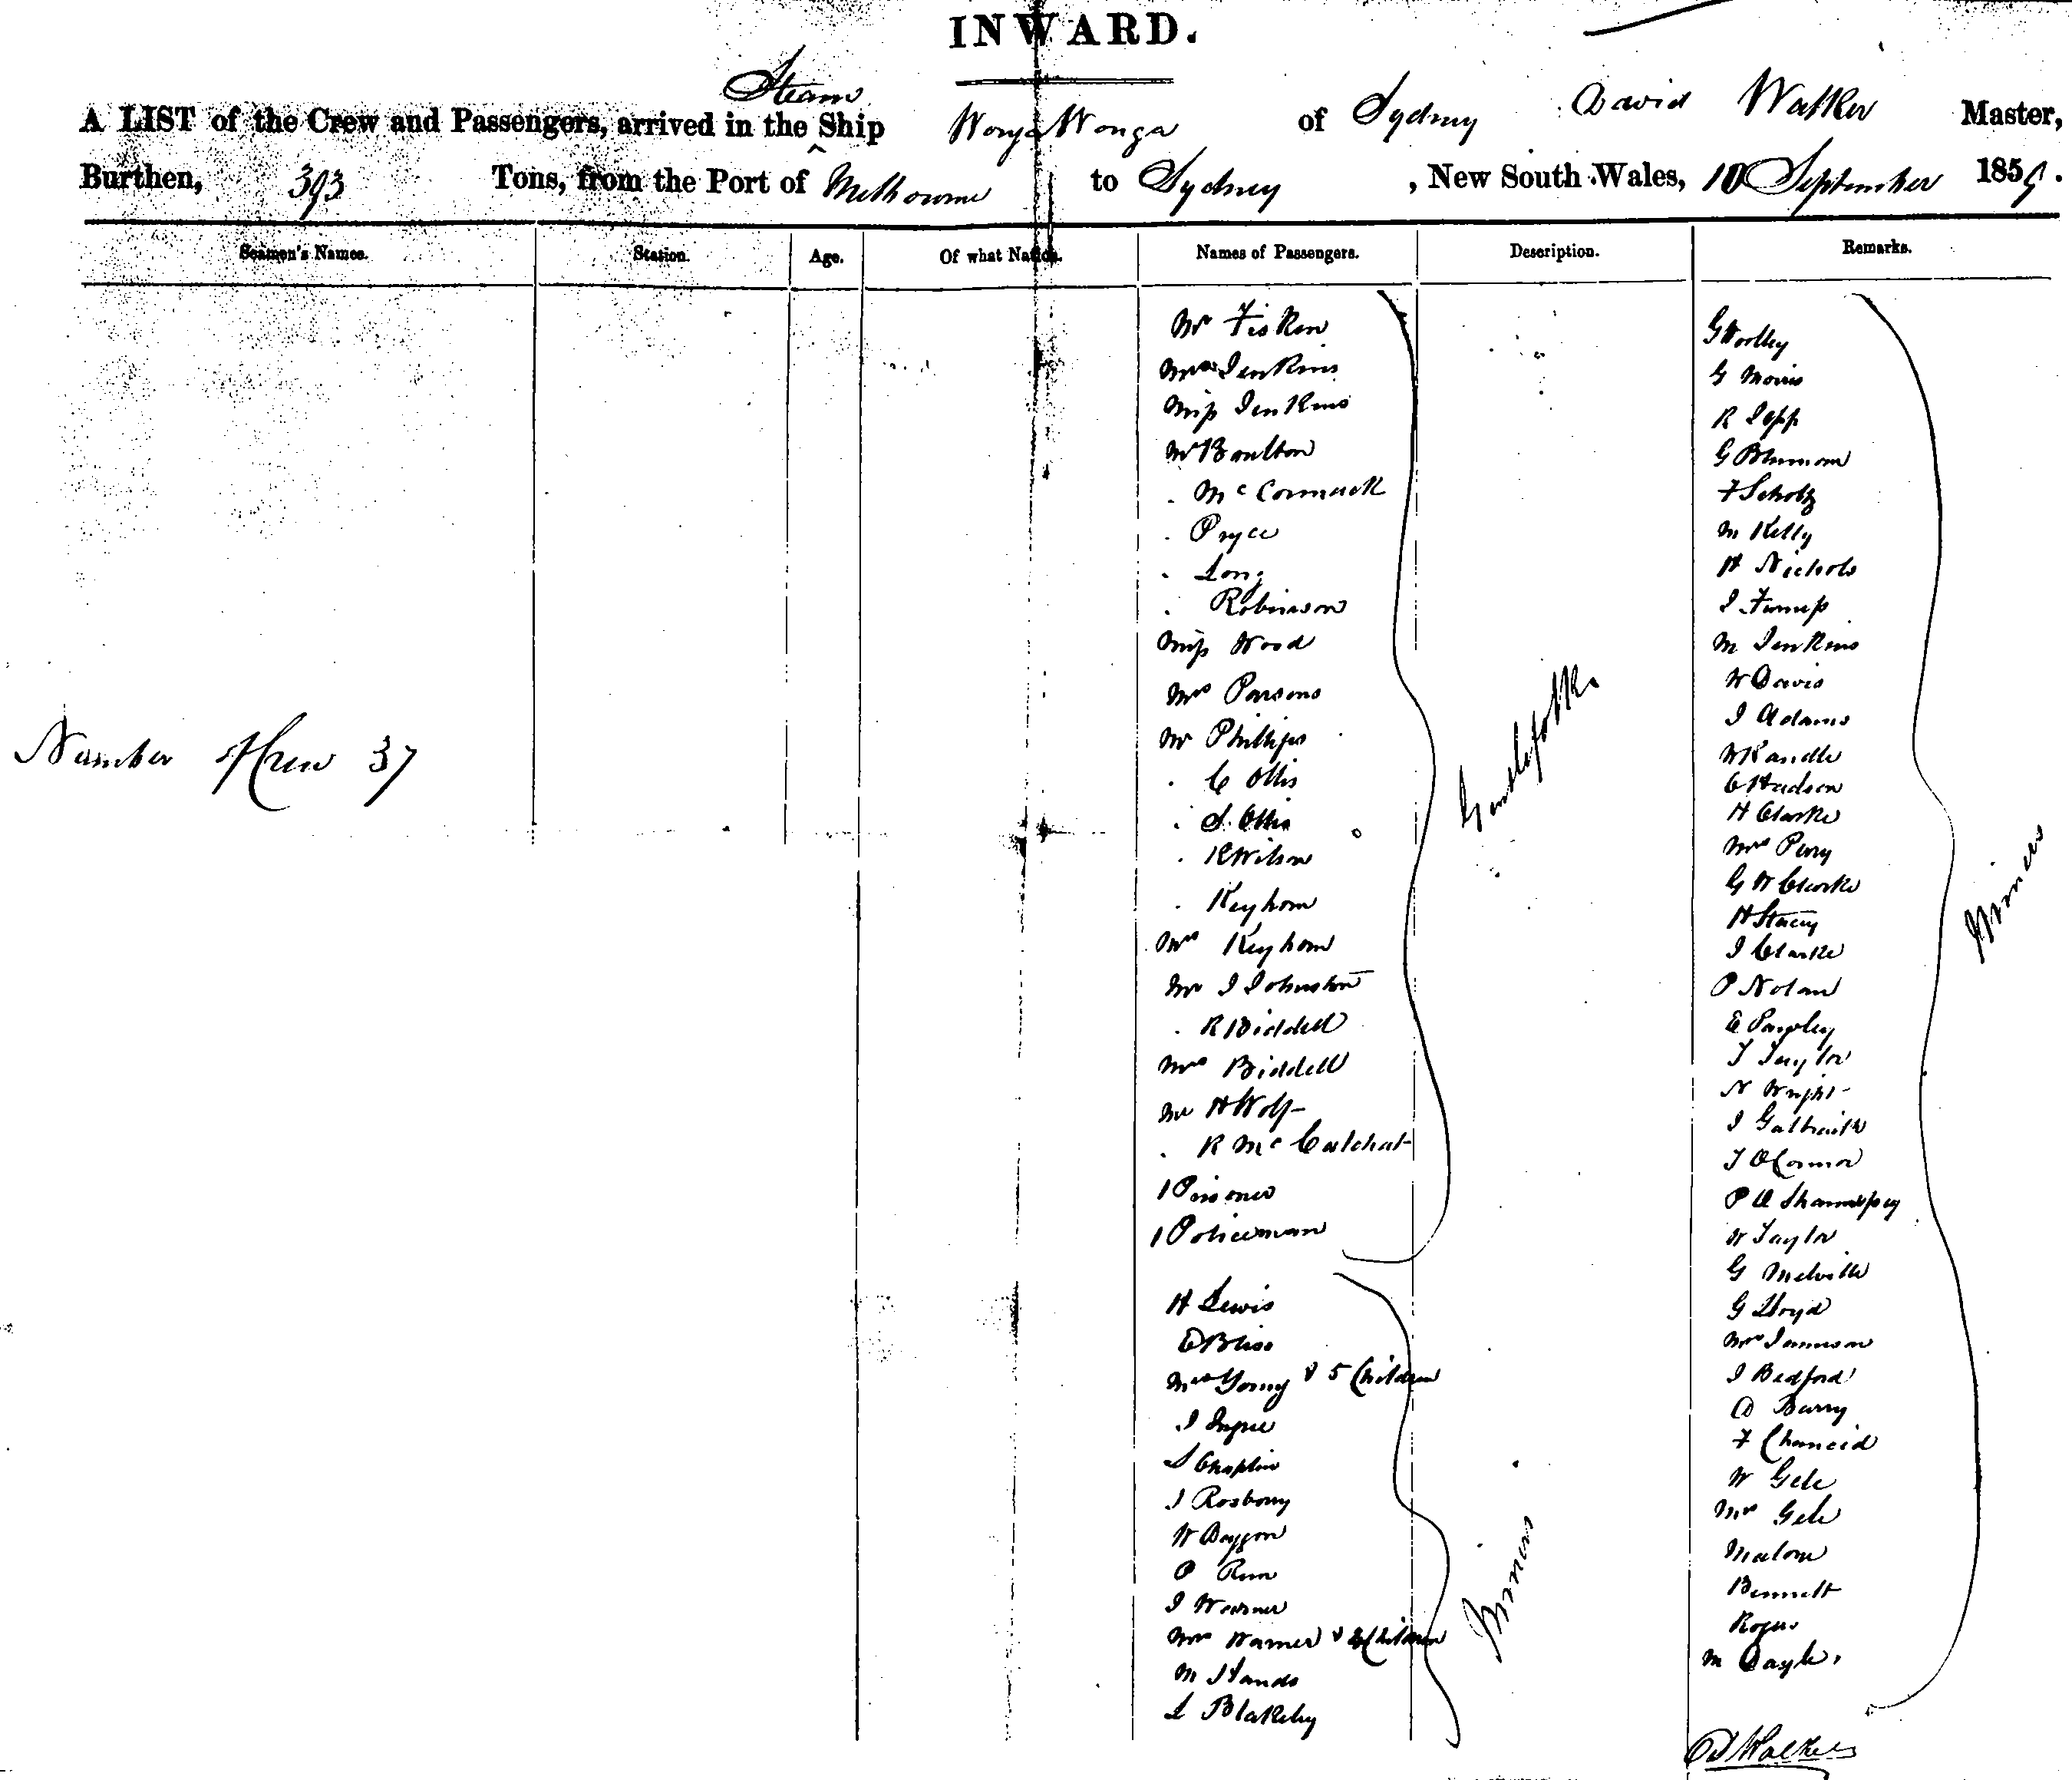 INWARD.
Steam
A LIST of the Crew and Passengers, arrived in the Ship Wonga Wonga of Sydney David Walker Master,
Burthen, 393 Tons, from the Port of Melbourne to Sydney, New South Wales, 10 September 1859.
Seamen's Names. Station. Age. Of what Nation. Names of Passengers. Description. Remarks.
Number of Crew 37
Mr Fisken
Mrs Jenkins
Miss Jenkins
Mr Boulton
. McCormack
. Pryce
. Long
. Robinson
Miss Wood
Mrs Parsons
Mr Phillips
. C Ollis
. S. Ollis
. R Wilson
. Keyhorn
Mrs Keyhorn
Mr J Johnston
. R Biddell
Mrs Biddell
Mr H Wolf
. R Mc
1 Prisoner
1 Policeman
Gentlefolks
H Lewis
Bliss
Mrs Young & 5 Children
J
S Chaplin
J
W
P
J Warner
Mrs Warner & Children
M Hands
L Blakeley
Miners
G Woolley
G Morris
R Jepp
G
F Scholtz
M Kelly
H Nichols
J Furness
M Jenkins
W Davis
J Adams
W Randle
C Hudson
H Clarke
Mrs Perry
G W Clarke
H Stacey
J Clarke
P Nolan
E
T Taylor
N Wright
J Galbraith
T O'Connor
P O
W Taylor
G Melville
G Lloyd
Mrs
J Bedford
D Barry
F
W Gele
Mrs Gele
Malone
Bennett
Rogers
M
Miners
D Walker